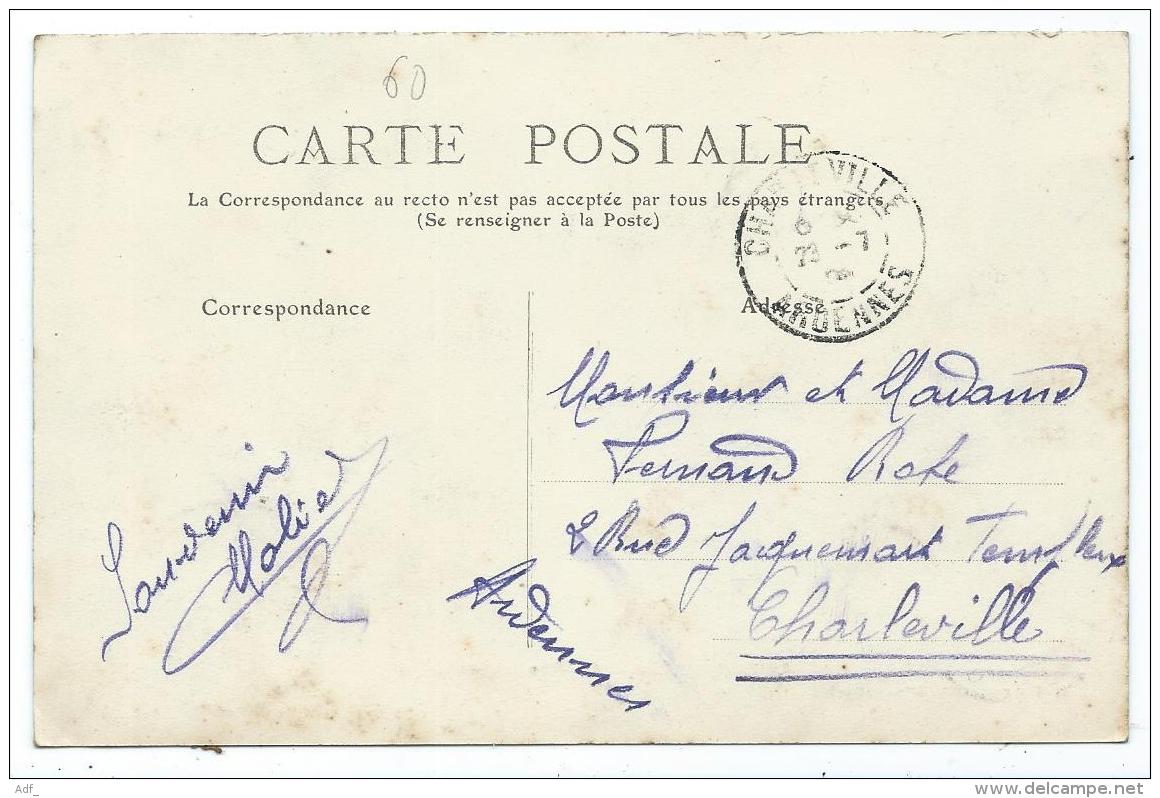 60
CARTE POSTALE
La Correspondance au recto n'est pas acceptée par tous les pays étrangers
(Se renseigner à la Poste)
CHARLEVILLE
ARDENNES
Correspondance
Adresse
Monsieur et Madame
Fernand
2 Rue Jacquemart Templeux
Charleville
Ardennes
Souvenir
Adf_
www.delcampe.net